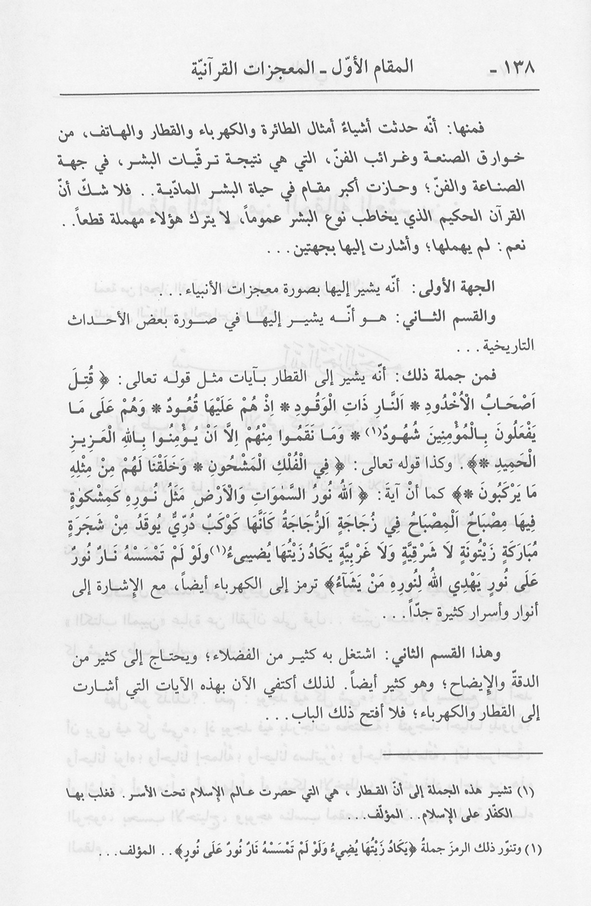 ١٣٨ - المقام الأوّل ـ المعجزات القرآنيّة
فمنها: أنّه حدثت أشياءُ أمثال الطائرة والكهرباء والقطار والهاتف، من
خوارق الصنعة وغرائب الفنّ، التي هي نتيجة ترقّيات البشر، في جهة
الصناعة والفنّ؛ وحازت أكبر مقام في حياة البشر الماديّة.. فلا شكّ أنّ
القرآن الحكيم الذي يخاطب نوع البشر عموماً، لا يترك هؤلاء مهملة قطعاً..
نعم: لم يهملها؛ وأشارت إليها بجهتين...
الجهة الأولى: أنّه يشير إليها بصورة معجزات الأنبياء...
والقسم الثاني: هو أنّه يشير إليها في صورة بعض الأحداث
التاريخية...
فمن جملة ذلك: أنّه يشير إلى القطار بآيات مثل قوله تعالى: ﴿ قُتِلَ
اَصْحَابُ الْاُخْدُودِ * اَلنَّارِ ذَاتِ الْوَقُودِ * اِذْ هُمْ عَلَيْهَا قُعُودٌ * وَهُمْ عَلَى مَا
يَفْعَلُونَ بِالْمُؤْمِنِينَ شُهُودٌ(١) * وَمَا نَقَمُوا مِنْهُمْ اِلاَّ اَنْ يُؤْمِنُوا بِاللهِ الْعَزِيزِ
الْحَمِيدِ *﴾. وكذا قوله تعالى: ﴿ فِي الْفُلْكِ الْمَشْحُونِ * وَخَلَقْنَا لَهُمْ مِنْ مِثْلِهِ
مَا يَرْكَبُونَ *﴾ كما أنّ آيةَ: ﴿ اَللهُ نُورُ السَّمٰوَاتِ وَالْاَرْضِ مَثَلُ نُورِهِ كَمِشْكٰوةٍ
فِيهَا مِصْبَاحٌ اَلْمِصْبَاحُ فِي زُجَاجَةٍ اَلزُّجَاجَةُ كَاَنَّهَا كَوْكَبٌ دُرِّيٌّ يُوقَدُ مِنْ شَجَرَةٍ
مُبَارَكَةٍ زَيْتُونَةٍ لاَ شَرْقِيَّةٍ وَلاَ غَرْبِيَّةٍ يَكَادُ زَيْتُهَا يُضِيىءُ(١)وَلَوْ لَمْ تَمْسَسْهُ نَارٌ نُورٌ
عَلَى نُورٍ يَهْدِي اللهُ لِنُورِهِ مَنْ يَشَاءُ﴾ ترمز إلى الكهرباء أيضاً، مع الإشارة إلى
أنوار وأسرار كثيرة جدّاً...
وهذا القسم الثاني: اشتغل به كثير من الفضلاء؛ ويحتاج إلى كثير من
الدقة والإيضاح؛ وهو كثير أيضاً. لذلك أكتفي الآن بهذه الآيات التي أشارت
إلى القطار والكهرباء؛ فلا أفتح ذلك الباب...
(١) تشير هذه الجملة إلى أنّ القطار، هي التي حصرت عالم الإسلام تحت الأسر. فغلب بها
الكفّار على الإسلام.. المؤلّف...
(١) وتنوّر ذلك الرمزَ جملةُ ﴿يَكَادُ زَيْتُهَا يُضِيءُ وَلَوْ لَمْ تَمْسَسْهُ نَارٌ نُورٌ عَلَى نُورٍ﴾.. المؤلف...